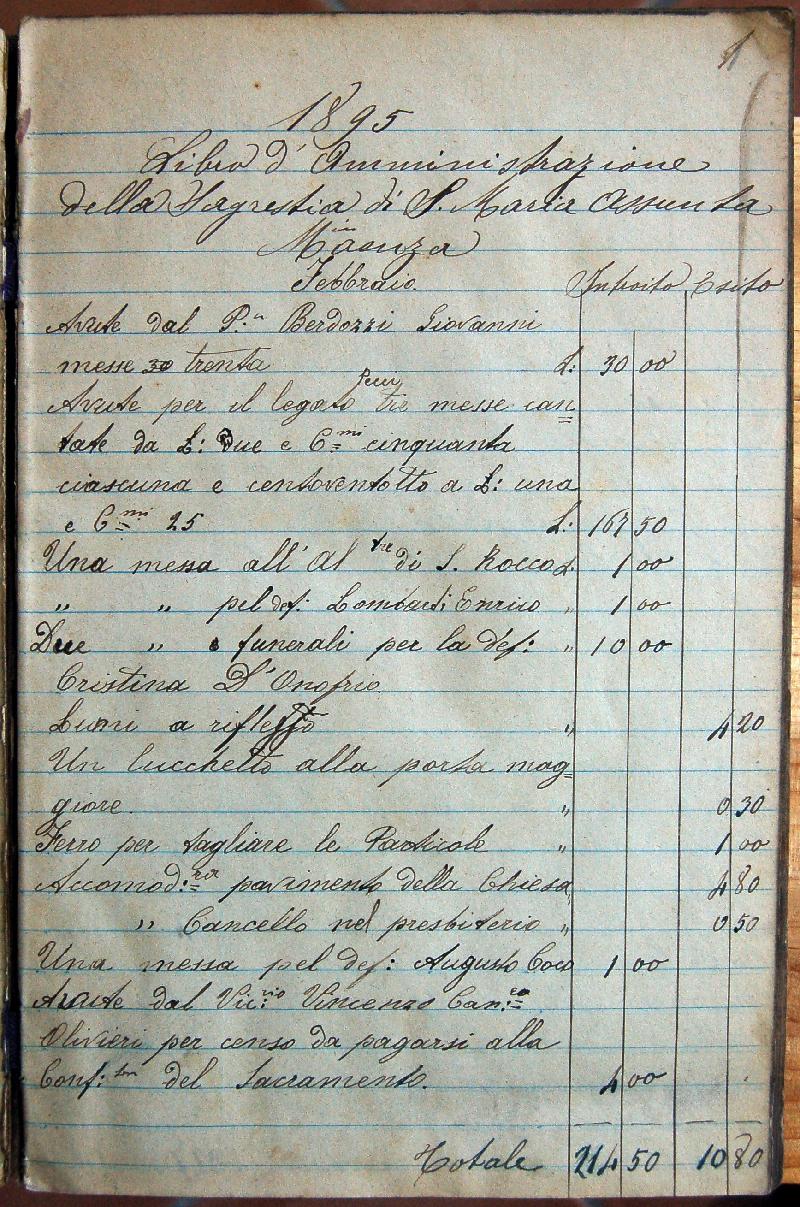 1
1895
Libro d'Amministrazione
della Sagrestia di S. Maria Assunta
in
Maenza
Febbraio. Introito Esito
Avute dal P.n Berdozzi Giovanni
messe 30 trenta L: 30 00
Avute per il legato tre messe can=
tate da L: Due e C.mi cinquanta
ciascuna e centoventotto a L: una
e C.mi 25 L: 167 50
Una messa all'Al tre di S. Rocco L. 1 00
" " pel def: Lombardi Enrico " 1 00
Due " e funerali per la def: " 10 00
Cristina D'Onofrio
Lumi a riflesso " 4 20
Un lucchetto alla porta mag=
giore. " 0 30
Ferro per tagliare le Particole " 1 00
Accomod:ra pavimento della Chiesa " 4 80
" Cancello nel presbiterio " 0 50
Una messa pel def: Augusto Coco 1 00
Avute dal Vic:rio Vincenzo Can:co
Olivieri per censo da pagarsi alla
Conf: del Sacramento. 4 00
Totale 214 50 10 80